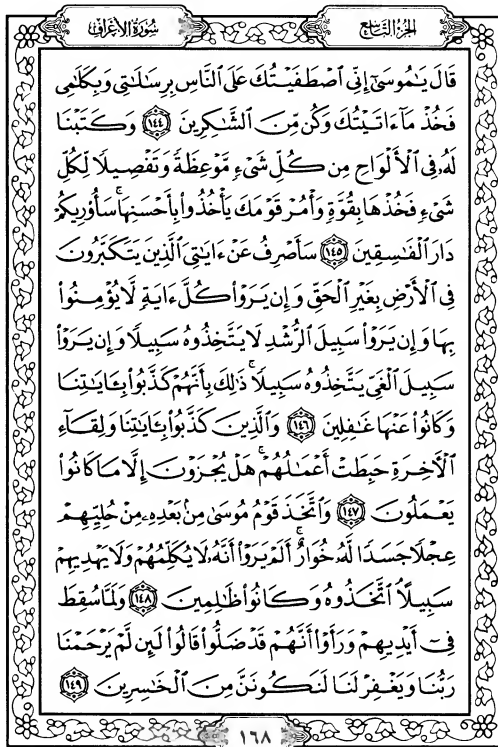 الجزء التاسع
سورة الأعراف
قَالَ يَٰمُوسَىٰٓ إِنِّى ٱصْطَفَيْتُكَ عَلَى ٱلنَّاسِ بِرِسَٰلَٰتِى وَبِكَلَٰمِى
فَخُذْ مَآ ءَاتَيْتُكَ وَكُن مِّنَ ٱلشَّٰكِرِينَ ١٤٤ وَكَتَبْنَا
لَهُۥ فِى ٱلْأَلْوَاحِ مِن كُلِّ شَىْءٍ مَّوْعِظَةً وَتَفْصِيلًا لِّكُلِّ
شَىْءٍ فَخُذْهَا بِقُوَّةٍ وَأْمُرْ قَوْمَكَ يَأْخُذُوا۟ بِأَحْسَنِهَا ۚ سَأُو۟رِيكُمْ
دَارَ ٱلْفَٰسِقِينَ ١٤٥ سَأَصْرِفُ عَنْ ءَايَٰتِىَ ٱلَّذِينَ يَتَكَبَّرُونَ
فِى ٱلْأَرْضِ بِغَيْرِ ٱلْحَقِّ وَإِن يَرَوْا۟ كُلَّ ءَايَةٍ لَّا يُؤْمِنُوا۟
بِهَا وَإِن يَرَوْا۟ سَبِيلَ ٱلرُّشْدِ لَا يَتَّخِذُوهُ سَبِيلًا وَإِن يَرَوْا۟
سَبِيلَ ٱلْغَىِّ يَتَّخِذُوهُ سَبِيلًا ۚ ذَٰلِكَ بِأَنَّهُمْ كَذَّبُوا۟ بِـَٔايَٰتِنَا
وَكَانُوا۟ عَنْهَا غَٰفِلِينَ ١٤٦ وَٱلَّذِينَ كَذَّبُوا۟ بِـَٔايَٰتِنَا وَلِقَآءِ
ٱلْـَٔاخِرَةِ حَبِطَتْ أَعْمَٰلُهُمْ ۚ هَلْ يُجْزَوْنَ إِلَّا مَا كَانُوا۟
يَعْمَلُونَ ١٤٧ وَٱتَّخَذَ قَوْمُ مُوسَىٰ مِنۢ بَعْدِهِۦ مِنْ حُلِيِّهِمْ
عِجْلًا جَسَدًا لَّهُۥ خُوَارٌ ۚ أَلَمْ يَرَوْا۟ أَنَّهُۥ لَا يُكَلِّمُهُمْ وَلَا يَهْدِيهِمْ
سَبِيلًا ۘ ٱتَّخَذُوهُ وَكَانُوا۟ ظَٰلِمِينَ ١٤٨ وَلَمَّا سُقِطَ
فِىٓ أَيْدِيهِمْ وَرَأَوْا۟ أَنَّهُمْ قَدْ ضَلُّوا۟ قَالُوا۟ لَئِن لَّمْ يَرْحَمْنَا
رَبُّنَا وَيَغْفِرْ لَنَا لَنَكُونَنَّ مِنَ ٱلْخَٰسِرِينَ ١٤٩
١٦٨